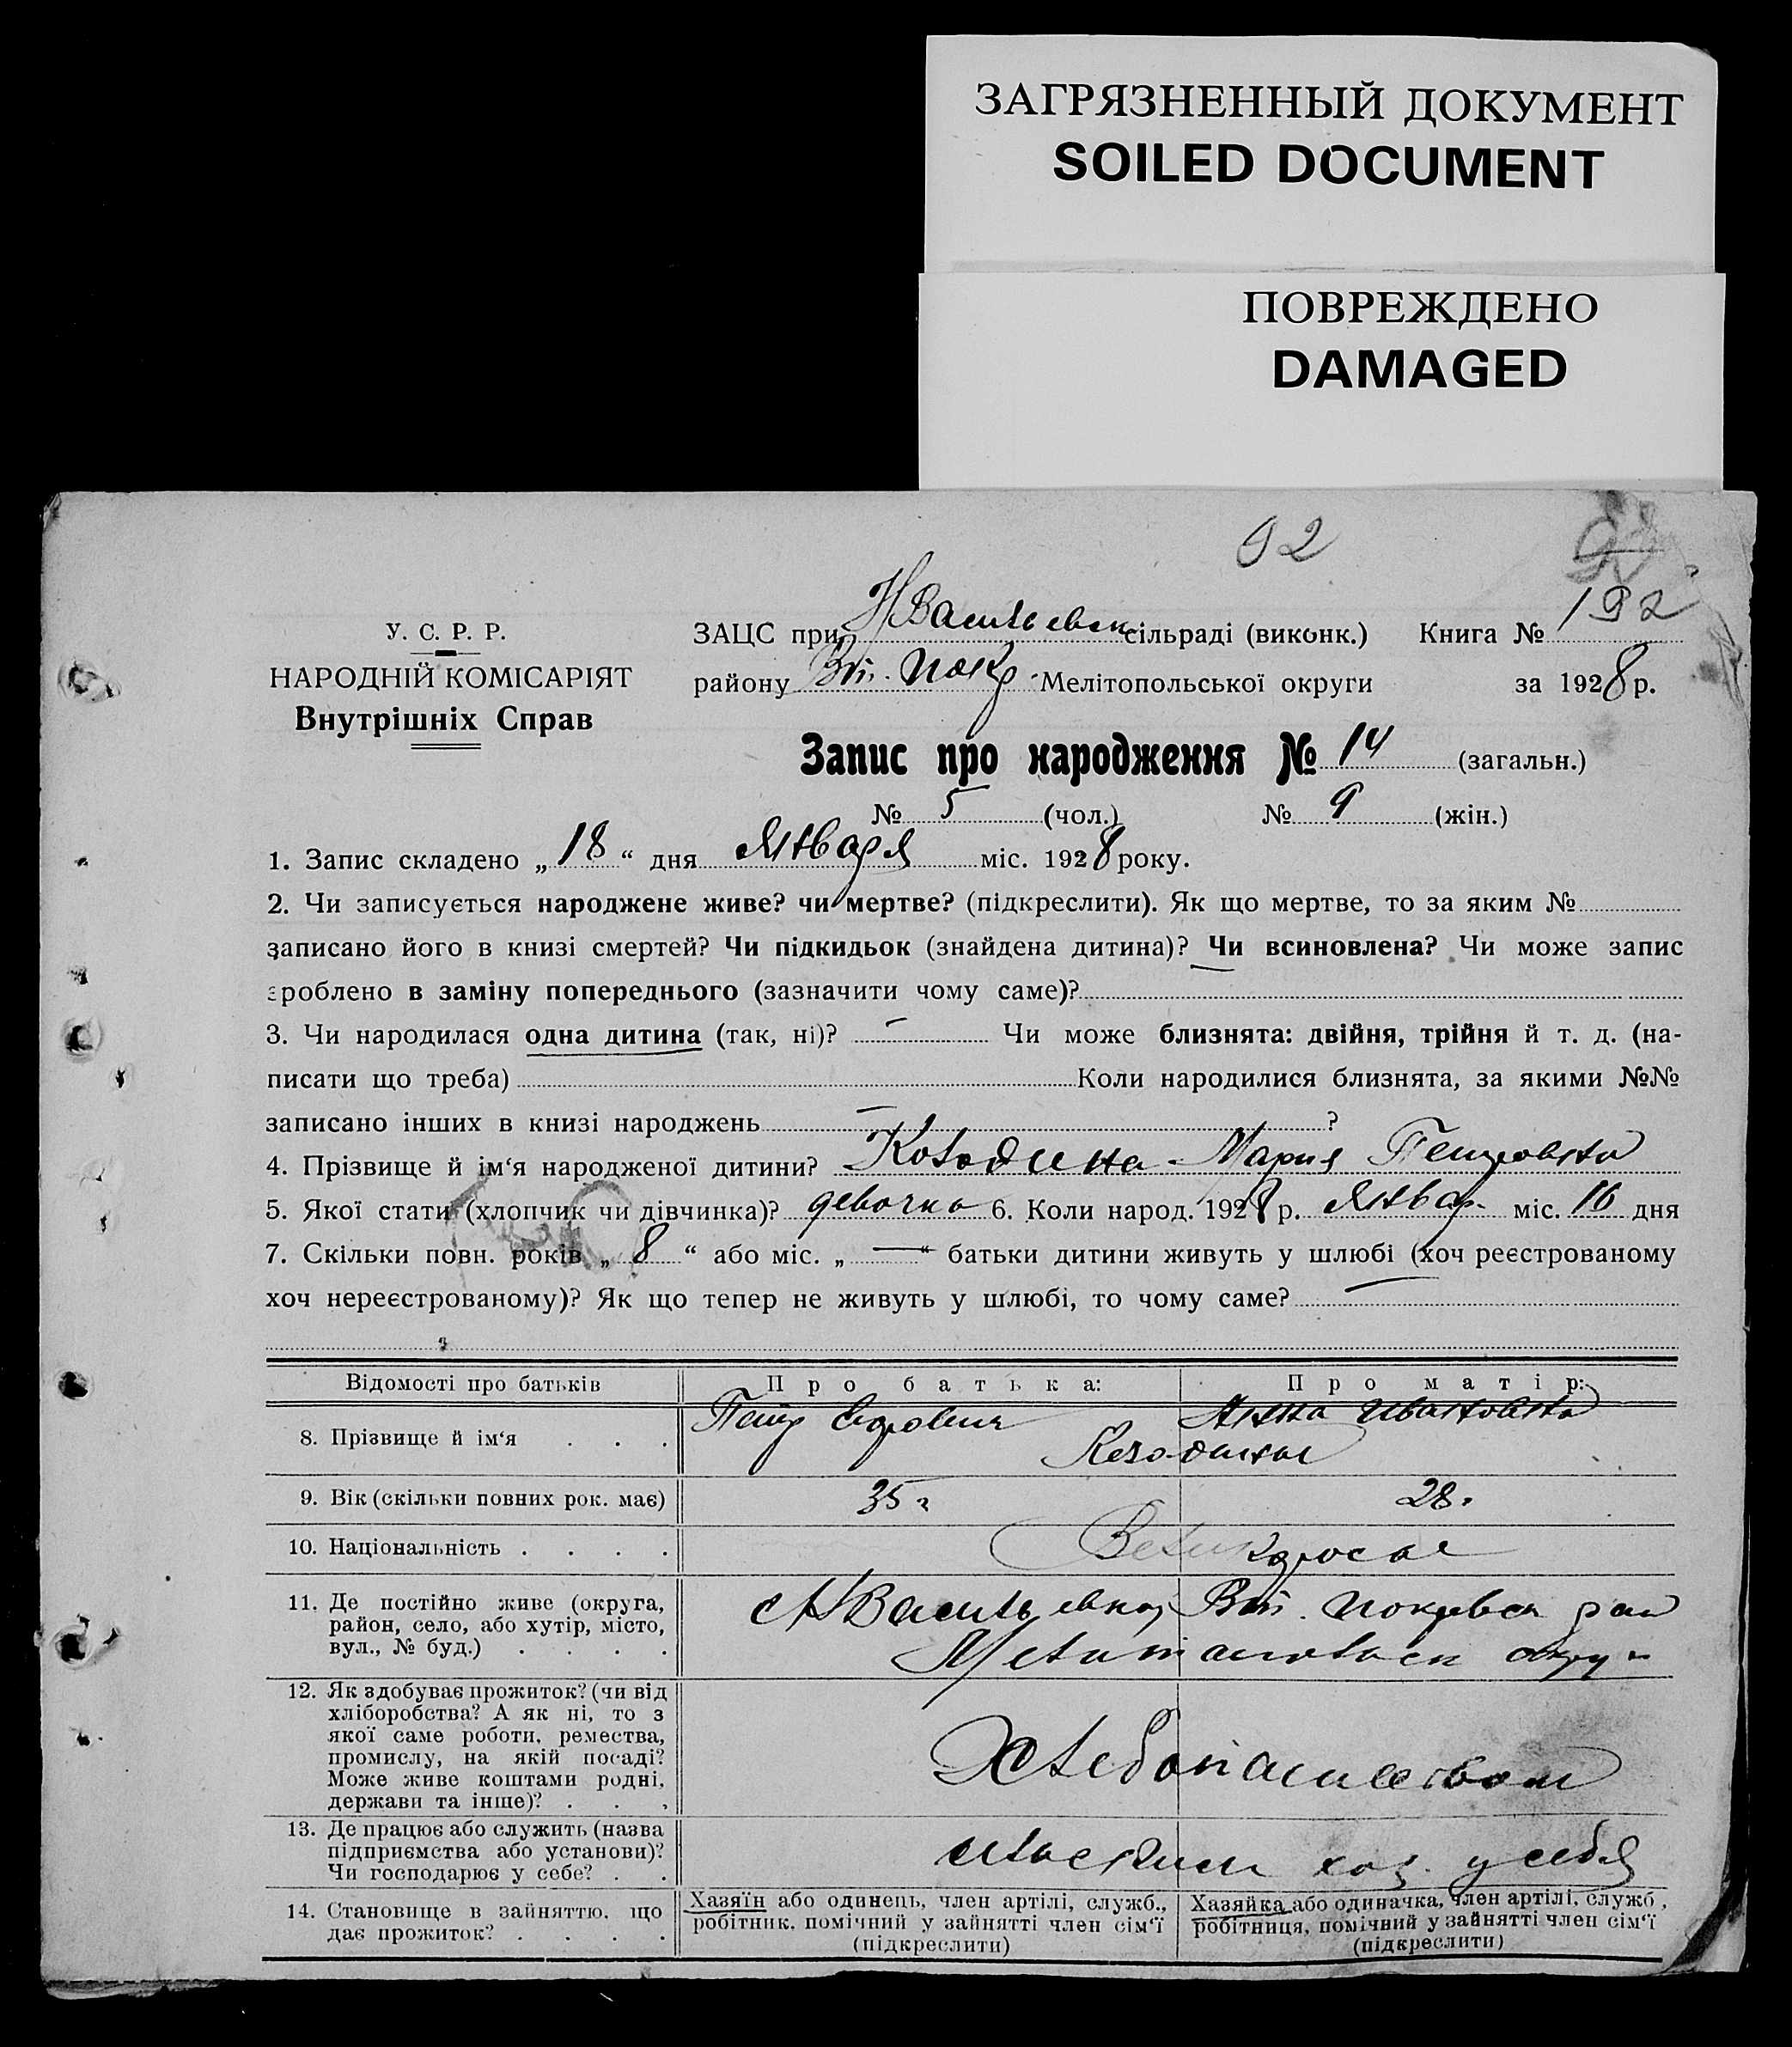 ЗАГРЯЗНЕННЫЙ ДОКУМЕНТ
SOILED DOCUMENT
ПОВРЕЖДЕНО
DAMAGED
92
192
У. С. Р. Р.
НАРОДНІЙ КОМІСАРІЯТ
Внутрішніх Справ
ЗАЦС при Н Васильевск сільраді (виконк.) Книга №
району Вт. Покр. Мелітопольської округи за 1928 р.
Запис про народження № 14 (загальн.)
№ 5 (чол.) № 9 (жін.)
1. Запис складено „18“ дня Января міс. 1928 року.
2. Чи записується народжене живе? чи мертве? (підкреслити). Як що мертве, то за яким №
записано його в книзі смертей? Чи підкидьок (знайдена дитина)? Чи всиновлена? Чи може запис
зроблено в заміну попереднього (зазначити чому саме)?
3. Чи народилася одна дитина (так, ні)? — Чи може близнята: двійня, трійня й т. д. (на-
писати що треба) Коли народилися близнята, за якими №№
записано інших в книзі народжень — ?
4. Прізвище й ім‘я народженої дитини? Мария Петровна
5. Якої стати (хлопчик чи дівчинка)? девочка 6. Коли народ. 1928 р. Январ. міс. 16 дня
7. Скільки повн. років „8“ або міс. „—“ батьки дитини живуть у шлюбі (хоч реєстрованому
хоч нереєстрованому)? Як що тепер не живуть у шлюбі, то чому саме? —
Відомості про батьків Про батька: Про матір:
8. Прізвище й ім‘я . . . Петр Анна Ивановна
9. Вік (скільки повних рок. має) 35 г 28 г
10. Національність . . . . Великоросы
11. Де постійно живе (округа,
район, село, або хутір, місто,
вул., № буд.) . . . .
Н Васильевка, Вт. Покровск район
Мелитопольск округ
12. Як здобуває прожиток? (чи від
хліборобства? А як ні, то з
якої саме роботи, ремества,
промислу, на якій посаді?
Може живе коштами родні,
держави та інше)? . . .
Хлебопашеством
13. Де працює або служить (назва
підприємства або установи)?
Чи господарює у себе? . .
сельским хоз. у себя
14. Становище в зайняттю, що
дає прожиток? . . . .
Хазяїн або одинець, член артілі, служб.,
робітник, помічний у зайнятті член сім‘ї
(підкреслити)
Хазяйка або одиначка, член артілі, служб,
робітниця, помічний у зайнятті член сім‘ї
(підкреслити)